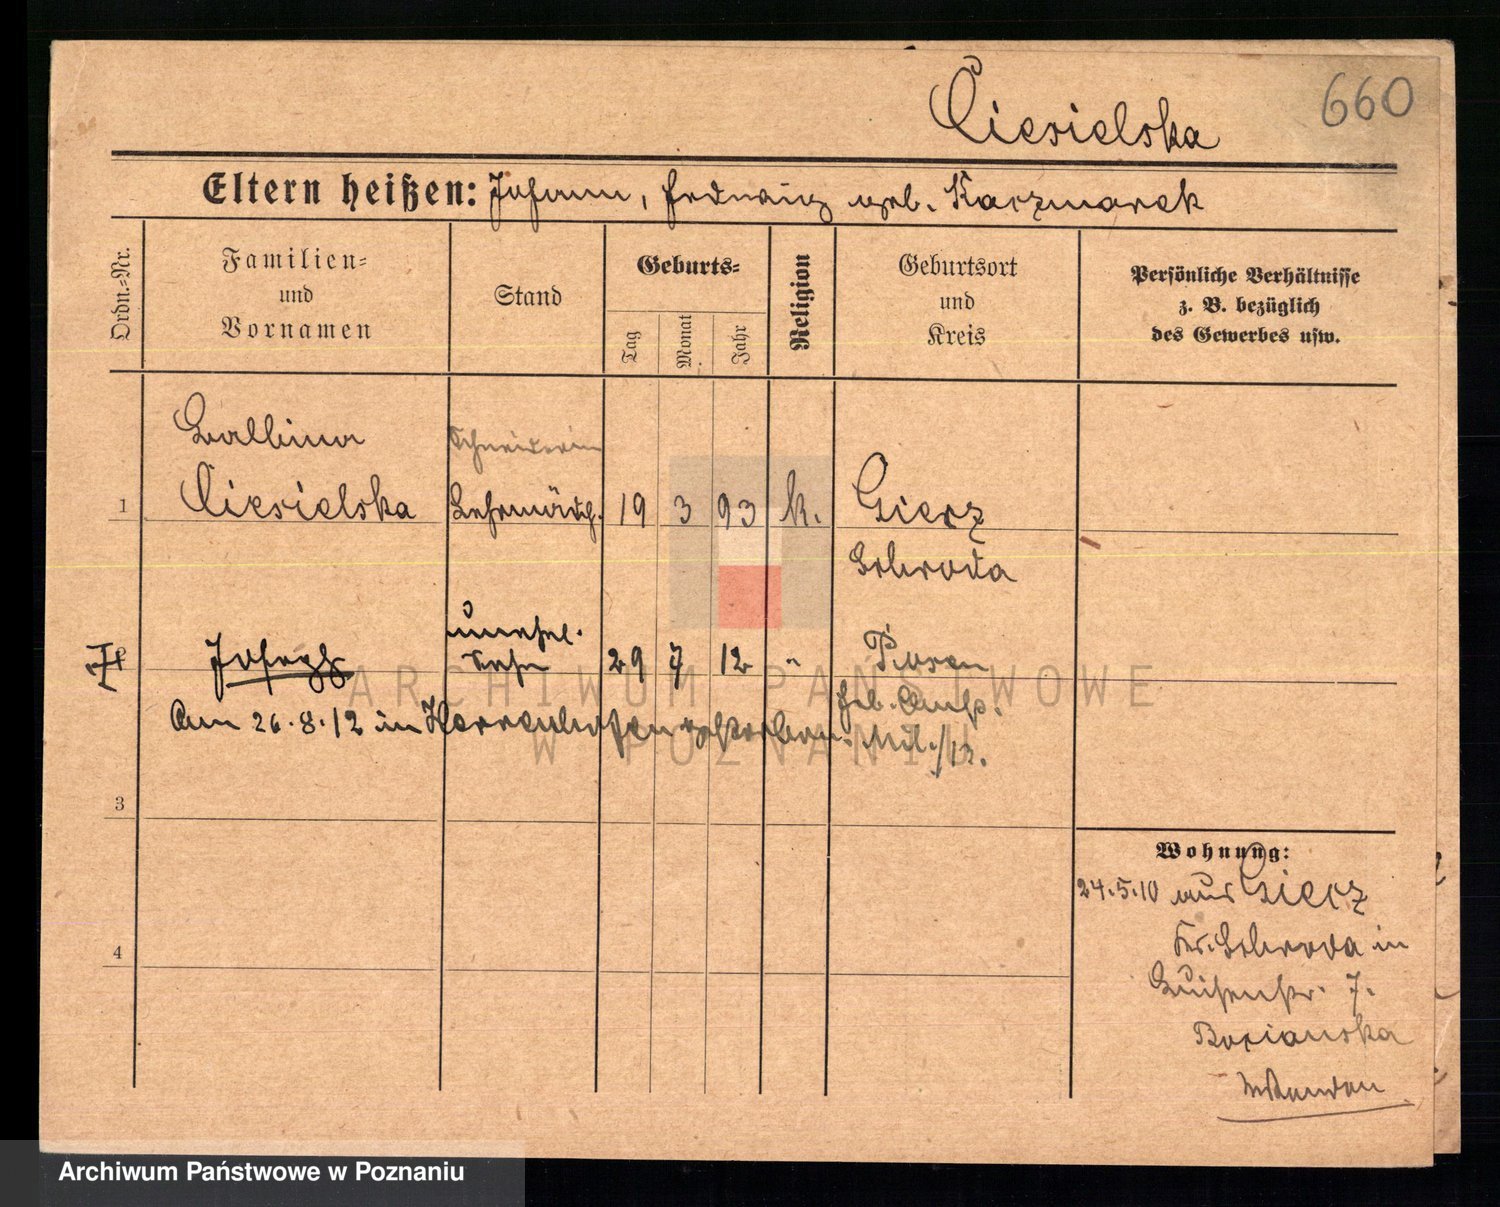 660
Ciesielska
Eltern heißen: Johann, Hedwig geb. Kaczmarek
Ordn.-Nr.
Familien-
und
Vornamen
Stand
Geburts-
Tag
Monat
Jahr
Religion
Geburtsort
und
Kreis
Persönliche Verhältnisse
z. B. bezüglich
des Gewerbes usw.
Balbina
Schneiderin
1 Ciesielska Lehrmädch. 19 3 93 k. Giecz
Schroda
unehel.
Joseph Sohn 29 7 12 " Posen
Heb. Anst.
Am 26.8.12 in Herrenhofen gestorben. Mil./12.
3
4
Wohnung:
24.5.10 aus Giecz
Kr. Schroda in
Luisenstr. 7.
Bocianska
ARCHIWUM PAŃSTWOWE
W POZNANIU
Archiwum Państwowe w Poznaniu